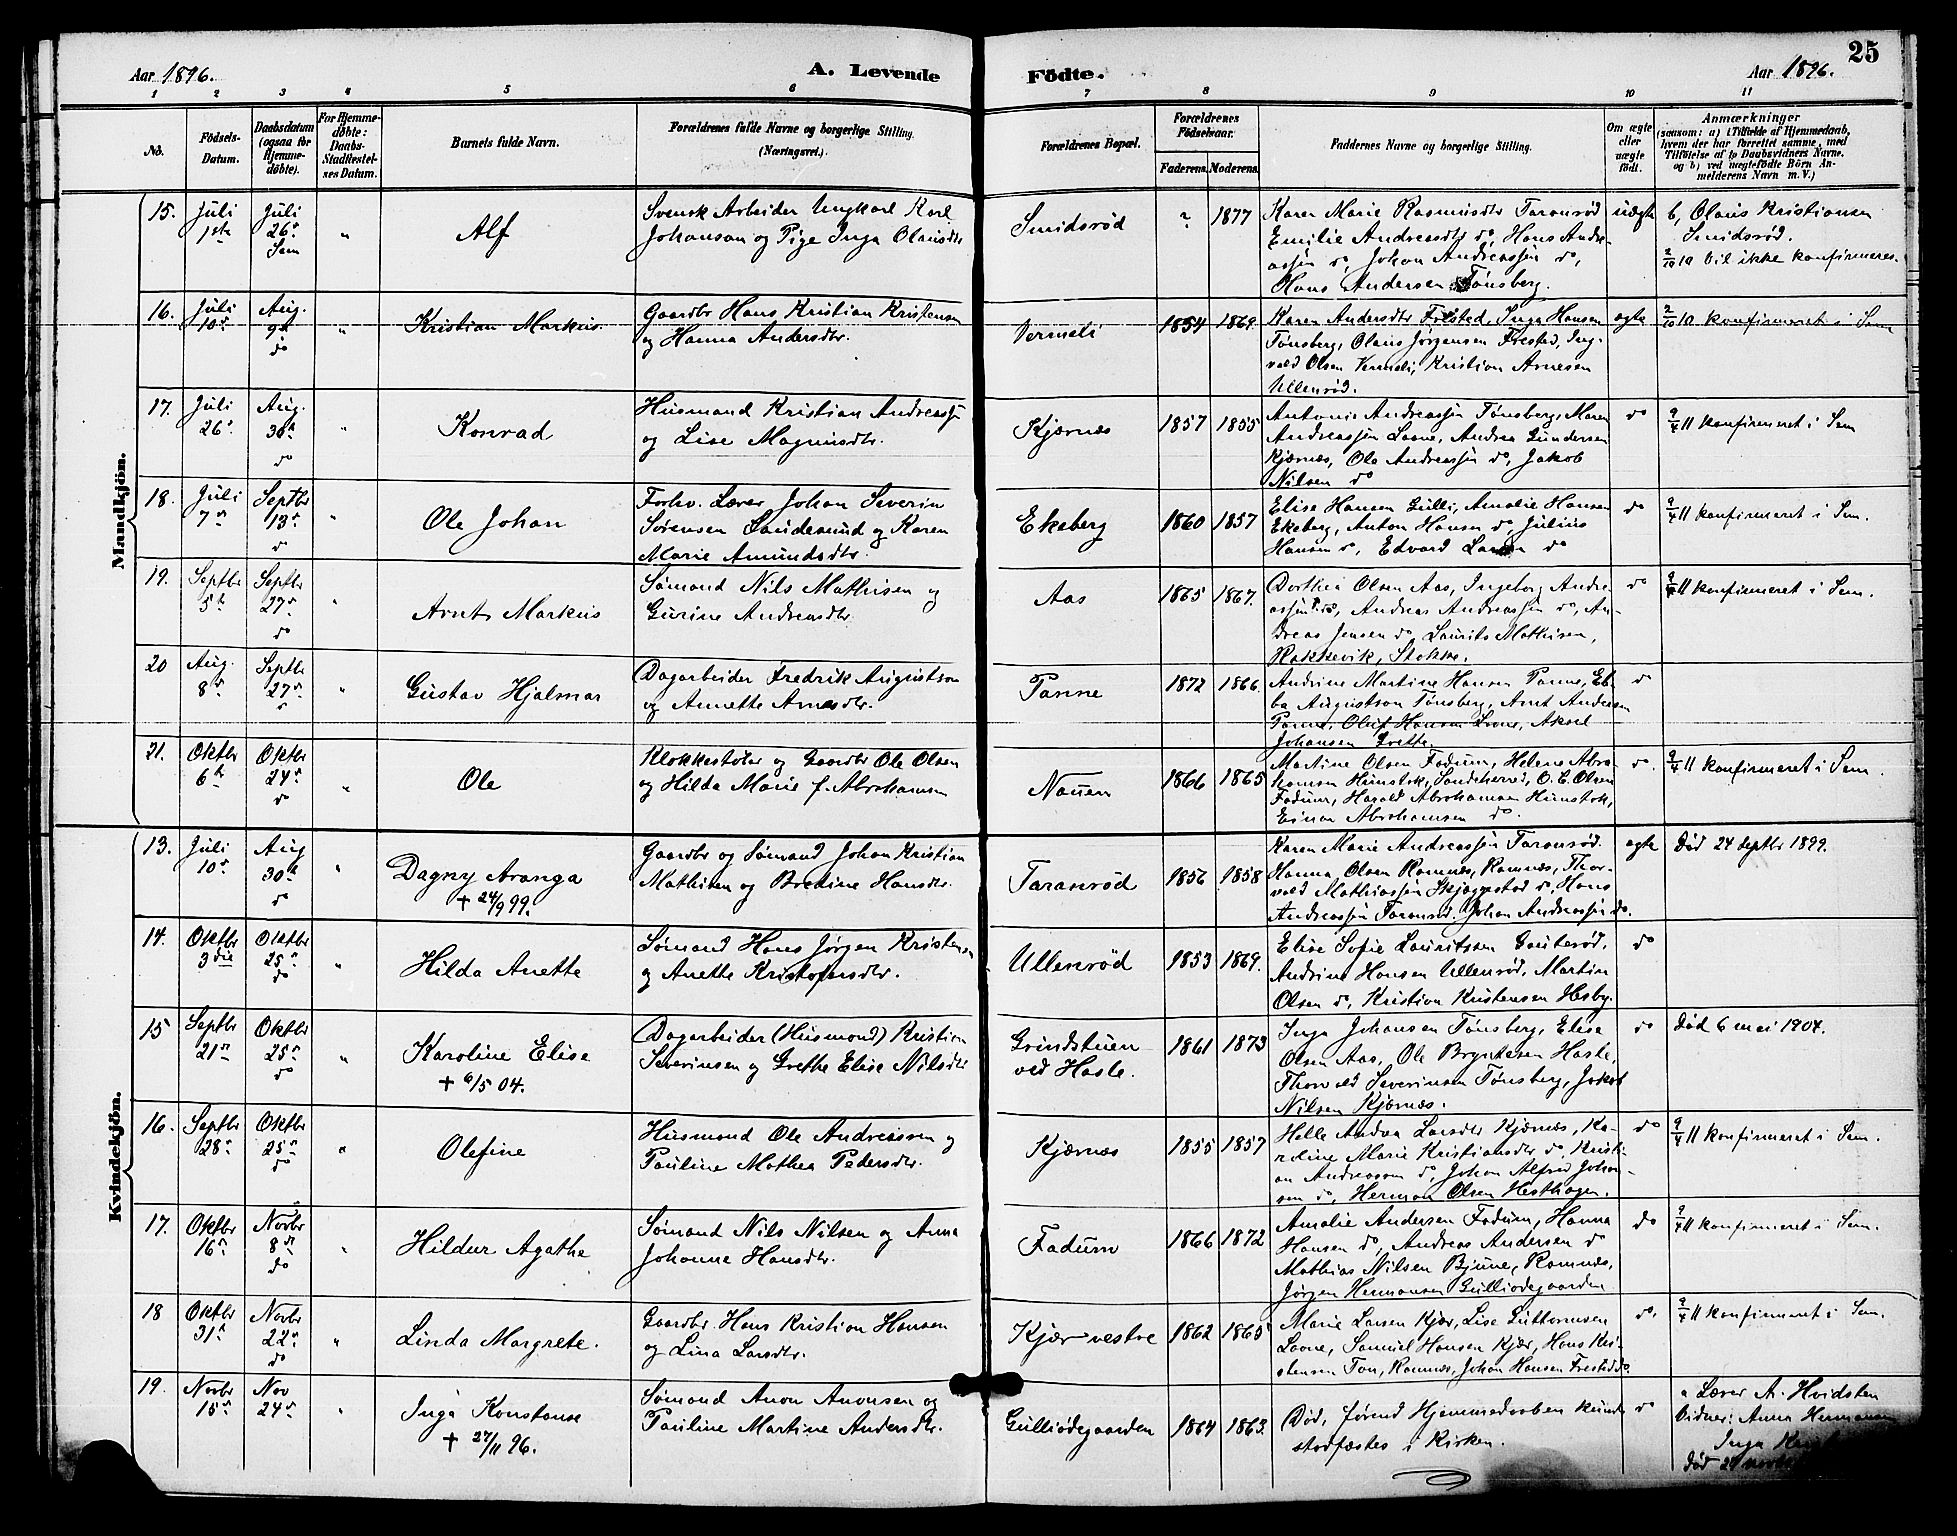 25
Aar 1896.
A. Levende
Födte.
Aar 1896.
1 2 3 4 5 6 7 8 9 10 11
No.
Födsels-
Datum.
Daabsdatum
(ogsaa for
Hjemme-
döbte).
For Hjemme-
döbte:
Daabs-
Stadfæstel-
ses Datum.
Barnets fulde Navn.
Forældrenes fulde Navne og borgerlige Stilling.
(Næringsvei.)
Forældrenes Bopæl.
Forældrenes
Födselsaar.
Faderens. Moderens.
Faddernes Navne og borgerlige Stilling.
Om ægte
eller
uægte
født.
Anmærkninger
(saasom: a) i Tilfælde af Hjemmedaab,
hvem der har forrettet samme, med
Tilföielse af to Daabsvidners Navne.
og b) ved uægtefödte Börn An-
melderens Navn m. V.)
Mandkjön.
15.
Juli
1ste
Juli
26de
Sem
"
Alf
Svensk Arbeider Ungkarl Karl
Johansan og Pige Inga Olausdtr
Smidsrød
?
1877
Karen Marie Rasmusdtr Taranrød
Emilie Andreasdtr do, Hans Andre-
assen do, Johan Andreassen do,
Hans Andersen Tønsberg.
uægte
b, Olaus Kristiansen
Smidsrød.
2/10 10 bil ikke konfirmeres.
16.
Juli
10de
Aug.
9de
do
"
Kristian Markus.
Gaardbr Hans Kristian Kristensen
og Hanna Andersdtr.
Vermeli
1854
1869.
Karen Andersdtr Frestad, Inga Hansen
Tønsberg, Olaus Jørgensen Frestad, Ing-
vald Olsen Vermeli, Kristian Arnesen
Ullenrød.
ægte
2/10 10 konfirmeret i Sem
17.
Juli
26de
Aug.
30te
do
"
Konrad
Husmand Kristian Andreassen
og Lise Magnusdtr.
Kjærnæs
1857
1855
Antoni Andreassen Tønsberg, Maren
Andreassen Lovne, Andrea Gundersen
Kjærnæs, Ole Andreassen do, Jakob
Nilsen do
do
9/4 11 konfirmeret i Sem
18.
Juli
7de
Septbr
13de
do
"
Ole Johan
Forhv. Lærer Johan Severin
Sørensen Sandesund og Karen
Marie Amundsdtr.
Ekeberg
1860
1857
Elise Hansen Gulli, Amalie Hansen
Ekeberg, Anton Hansen do, Julius
Hansen do, Edvard Larsen do
do
9/4 11 konfirmeret i Sem.
19.
Septbr
5te
Septbr
27de
do
"
Arnt Markus
Sømand Nils Mathisen og
Gurine Andreasdtr.
Aas
1865
1867.
Dorthea Olsen Aas, Ingeborg Andre-
assen do, Andreas Andreassen do, An-
dreas Jensen do, Laurits Mathisen,
Rakkevik, Stokke.
do
9/4 11 konfirmeret i Sem.
20
Aug.
8de
Septbr
27de
do
"
Gustav Hjalmar
Dagarbeider Fredrik Augustson
og Annette Arnesdtr.
Tanne
1872
1866.
Andrine Martine Hansen Tanne, Eb-
ba Augustson Tønsberg, Arnt Andersen
Tanne, Oluf Hansen Lovne, Aksel
Johansen Grette.
do
21.
Oktbr
6te
Oktbr
24de
do
"
Ole
Klokkestøber og Gaardbr Ole Olsen
og Hilda Marie f. Abrahamsen
Nauen
1866
1865
Martine Olsen Fadum, Helene Abra-
hamsen Hunstok, Sandeherred, O. E. Olsen
Fadum, Harald Abrahamsen Hunstok,
Einar Abrahamsen do.
do.
9/4 11 konfirmeret i Sem.
Kvindekjön.
13.
Juli
10de
Aug
30te
do
"
Dagny Aranga
+ 24/9 99.
Gaardbr og Sømand Johan Kristian
Mathisen og Bredine Hansdtr.
Taranrød
1856
1858
Karen Marie Andreassen Taranrød.
Hanna Olsen Ramnæs, Ramnæs, Thor-
vald Mathiassen Skjaggestad do, Hans
Andreassen Taranrød. Johan Andreassen do.
ægte
Død 24 septbr 1899.
14.
Oktbr
3die
Oktbr
25de
do
"
Hilda Anette
Sømand Hans Jørgen Kristensen
og Anette Kristofersdtr.
Ullenrød
1853
1869.
Elise Sofie Lauritssen Gauterød,
Andrine Hansen Ullenrød, Martin
Olsen do, Kristian Kristensen Hesby.
do
15
Septbr
21de
Oktbr
25de
do
"
Karoline Elise
+ 6/5 04.
Dagarbeider (Husmand) Kristian
Severinsen og Grethe Elise Nilsdtr
Grindstuen
ved Hasle.
1861
1873
Inga Johansen Tønsberg, Elise
Olsen Aas, Ole Bryntesen Hasle,
Thorvald Severinsen Tønsberg, Jakob
Nilsen Kjærnæs.
do
Død 6 mai 1904.
16.
Septbr
28de
Oktbr
25de
do
"
Olefine
Husmand Ole Andreassen og
Pauline Mathea Pedersdtr.
Kjærnæs
1855
1857
Helle Andrea Larsdtr Kjærnæs, Ka-
roline Marie Kristiansdtr do, Kristi-
an Andreassen do, Johan Alfred Johan-
sen do, Herman Olsen Hesthagen.
do
9/4 11 konfirmeret i Sem.
17.
Oktbr
16de
Novbr
8de
do
"
Hildur Agathe
Sømand Nils Nilsen og Anna
Johanne Hansdtr.
Fadum
1866
1872
Amalie Andersen Fadum, Hanna
Hansen do, Andreas Andersen do
Mathias Nilsen Bjune, Ramnæs,
Jørgen Hermansen Gulliødegaarden
do
9/4 11 konfirmeret i Sem.
18
Oktbr
31te
Novbr
22de
do
"
Linda Margrete.
Gaardbr. Hans Kristian Hansen
og Lina Larsdtr.
Kjær vestre
1862
1865
Marie Larsen Kjær, Lise Guttormsen
Lovne, Samuel Hansen Kjær, Hans Kri-
stensen Ton, Ramnæs, Johan Hansen Frestad do.
do.
9/4 11 konfirmeret i Sem.
19.
Novbr
15de
Nov
24de
"
Inga Konstanse
+ 27/11 96.
Sømand Anon Anonsen og
Pauline Martine Andersdtr.
Gulliødegaarden
1864
1863.
Død, førend Hjemmedaaben kunde
stadfæstes i Kirken.
do
a Lærer A. Hvidsten
Vidner: Anna Hermansen
Inga
Død 27 novbr